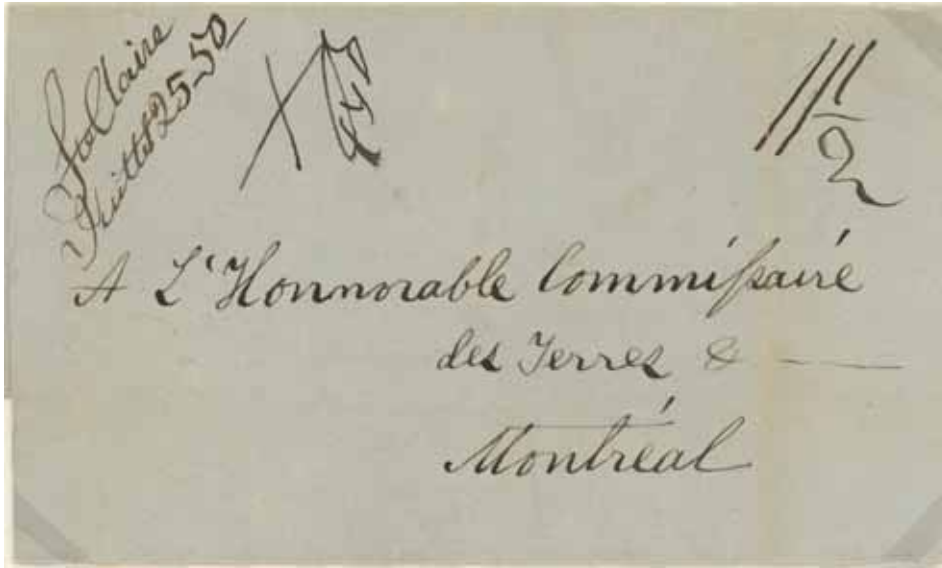 Claire
Juillet 25-50
11 1/2
A L'Honnorable Commiſsaire
des Terres &
Montréal